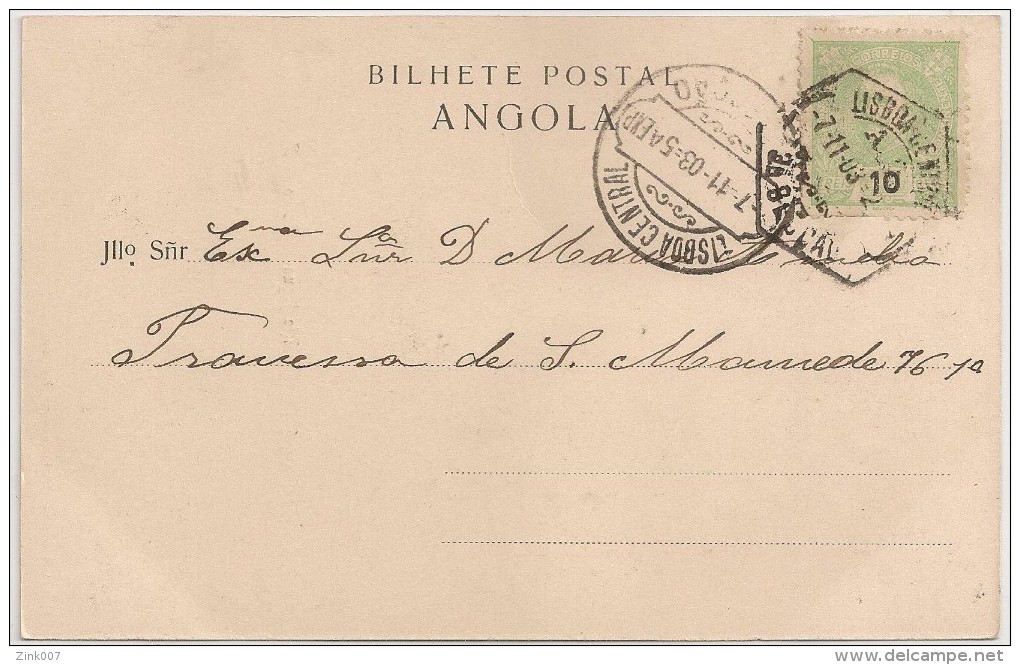 BILHETE POSTAL
ANGOLA
CORREIOS
10
LISBOA CENTRAL
-7-11-03
LISBOA CENTRAL
-7-11-03=5A(EXP)
Jllo. Sñr Exma Sñra D Maria
Travessa de S. Mamede 76 1º
Zink007
delcampe.net